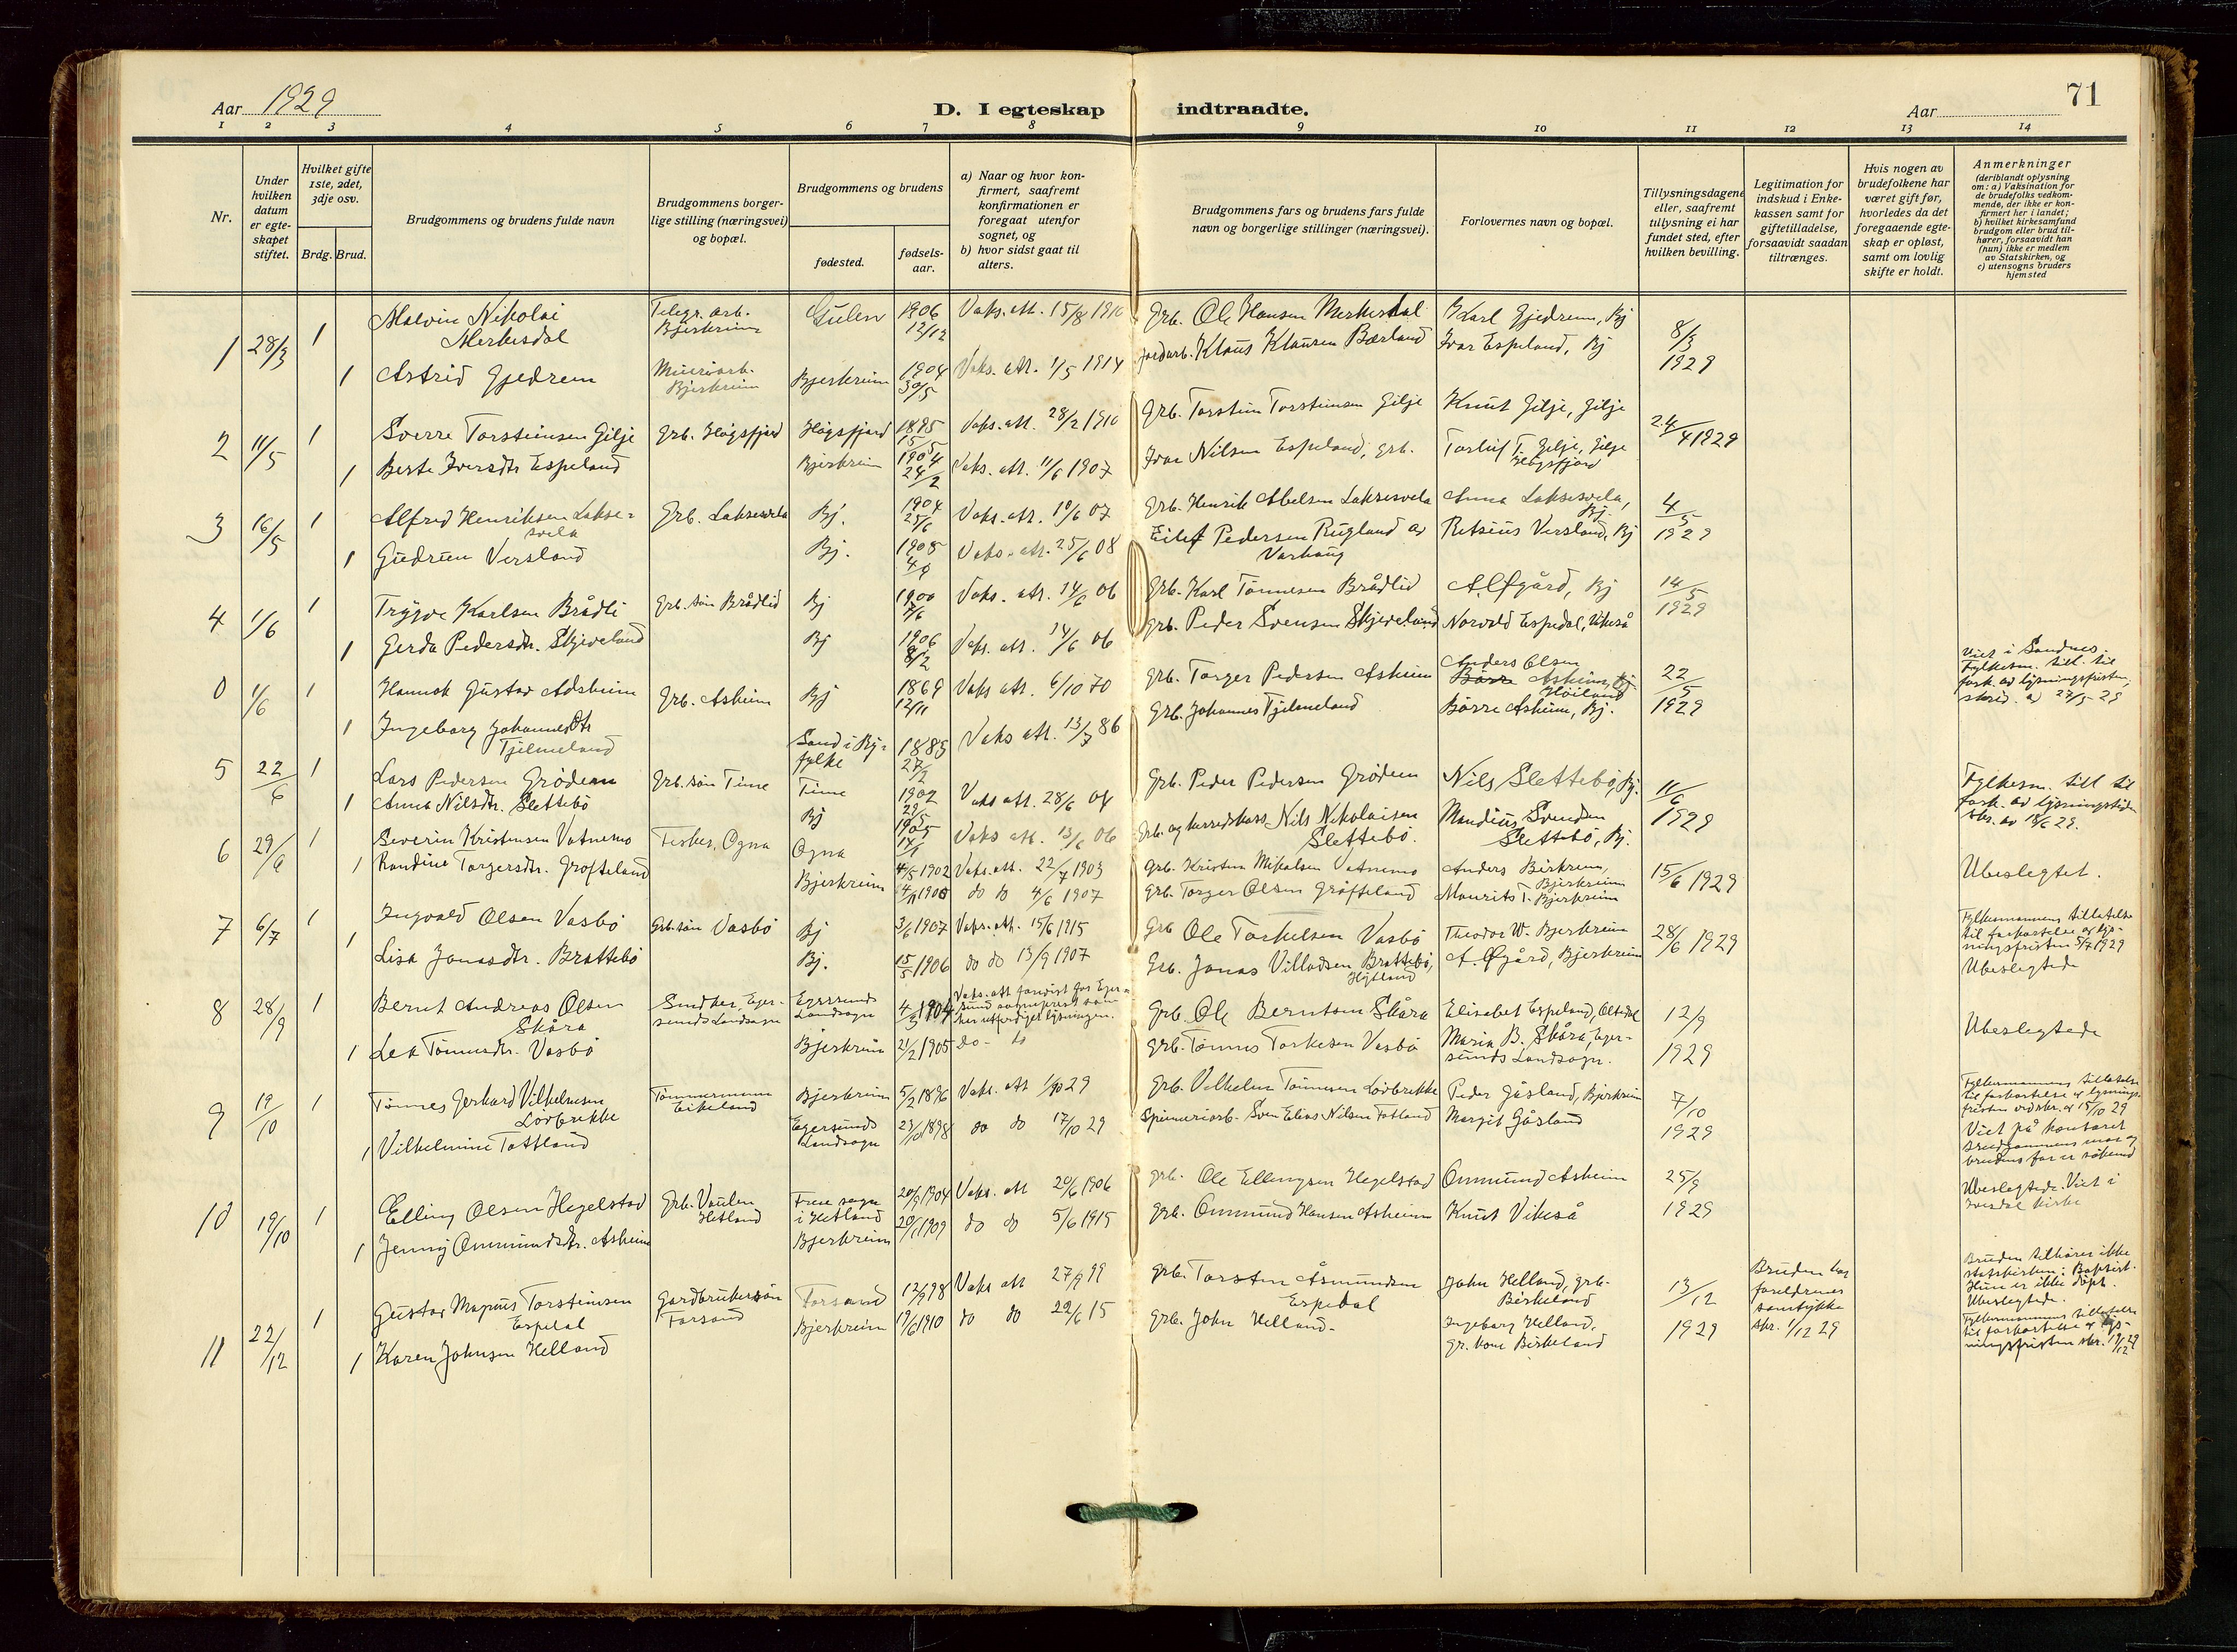 Aar 1929
D. I egteskap indtraadte.
Aar
71
1 2 3 4 5 6 7 8 9 10 11 12 13 14
Nr.
Under hvilken datum er egteskapet stiftet.
Hvilket gifte 1ste, 2det, 3dje osv.
Brdg. Brud.
Brudgommens og brudens fulde navn
Brudgommens borgerlige stilling (næringsvei) og bopæl.
Brudgommens og brudens
fødested.
fødselsaar.
a) Naar og hvor konfirmert, saafremt konfirmationen er foregaat utenfor sognet, og
b) hvor sidst gaat til alters.
Brudgommens fars og brudens fars fulde navn og borgerlige stillinger (næringsvei).
Forlovernes navn og bopæl.
Tillysningsdagene eller, saafremt tillysning ei har fundet sted, efter hvilken bevilling.
Legitimation for indskud i Enkekassen samt for giftetilladelse, forsaavidt saadan tiltrænges.
Hvis nogen av brudefolkene har været gift før, hvorledes da det foregaaende egteskap er opløst, samt om lovlig skifte er holdt.
Anmerkninger (deriblandt oplysning om: a) Vaksination for de brudefolks vedkommende, der ikke er konfirmert her i landet; b) hvilket kirkesamfund brudgom eller brud tilhører, forsaavidt han (hun) ikke er medlem av Statskirken, og c) utensogns bruders hjemsted
1 28/3 1 Malvin Nikolai Merkesdal Telegr. arb. Bjerkreim Gulen 1906 12/12 Vaks. att. 15/8 1910 Grb. Ole Hansen Merkesdal Karl Gjedrem, Bj 8/3 1929
1 Astrid Gjedrem Bjerkreim Bjerkreim 1904 30/5 Vaks. att. 1/5 1914 Klaus Klausen Ivar Espeland, Bj
2 11/5 1 Sverre Torsteinsen Gilje Grb. Høgsfjord Høgsfjord 1895 Vaks. att. 28/2 1910 Grb. Torstein Torsteinsen Gilje Knut Gilje, Gilje 24/4 1929
1 Berte Iversdtr Espeland Bjerkreim 1904 24/2 Vaks. att. 11/6 1907 Ivar Nilsen Espeland, grb. T. Gilje, Gilje Høgsfjord
3 16/5 1 Alfred Henriksen Laksesvela Grb. Laksesvela Bj. 1904 Vaks. att. 10/6 07 Grb. Henrik Abelsen Laksesvela Anna Laksesvela, Bj. 4/5 1929
1 Gudrun Versland Bj. 1908 4/9 Vaks. att. 25/6 08 Eilef Pedersen Rugland av Varhaug Retsius Versland, Bj
4 1/6 1 Trygve Karlsen Brådli Grb. søn Brådlid Bj 1900 Vaks. att. 14/6 06 Grb. Karl Tønnesen Brådlid A. Øfgård, Bj 14/5 1929
1 Gerda Pedersdtr. Skjeveland Bj 1906 8/2 Vaks. att. 14/6 06 Grb. Peder Svensen Skjeveland Norvald Espedal, Vikeså
0 1/6 1 Gustav Grb. Asheim Bj 1869 12/11 Vaks att. 6/10 70 Grb. Torger Pedersen Asheim Anders Olsen Asheim, Bj Høiland 22/5 1929 Viet i Sandnes. Fylkesm. till. til fork. av lysningsfristen, skriv. av 27/5 29
1 Ingeborg Johannesdtr Tjelmeland Sand i Ry-fylke 1885 Vaks att. 13/7 86 Grb. Johannes Tjelmeland Børre Asheim, Bj.
5 22/6 1 Lars Pedersen Grødem Grb. søn Time Time 1902 Vaks att. 28/6 04 Grb. Peder Pedersen Grødem Nils Slettebø, Bj. 11/6 1929 Fylkesm. till til fork. av lysningstiden skr. av 18/6 29.
1 Anna Nilsdtr. Slettebø Bj 1905 Vaks att. 13/6 06 Grb. og herredskass. Nils Nikolaisen Slettebø. Mandius Svendsen Slettebø, Bj.
6 29/6 1 Severin Kristensen Vatnemo Fisker, Ogna Ogna 4/5 1902 Vaks. att. 22/7 1903 Grb. Kristen Mikalsen Vatnemo Anders Birkrem, Bjerkreim 15/6 1929 Ubeslegtet.
1 Randine Torgersdtr. Grøfteland Bjerkreim 1905 do do 4/6 1907 Grb. Torger Olsen Grøfteland Maurits T. Bjerkreim
7 6/7 1 Ingvald Olsen Vasbø Grb. søn Vasbø Bj 3/6 1907 Vaks. att. 15/6 1915 Grb Ole Torkelsen Vasbø Theodor W. Bjerkreim 28/6 1929 Fylkesmannens tillatelse til forkortelse av lysningsfristen 5/7 1929
1 Lisa Jonasdtr. Brattebø Bj. 15/5 1906 do do 13/9 1907 Grb. Jonas Villadsen Brattebø, Hytland A. Øfgård, Bjerkreim Ubeslegtede
8 28/9 1 Bernt Andreas Olsen Skåra Snedker, Egersunds Landsogn Egersunds Landsogn 4/3 1904 Vaks. att. forevist for Egersund sogneprest som har utferdiget lysningen. Grb. Ole Berntsen Skåra Elisabet Espeland, 12/9 1929 Ubeslegtede
1 Lea Tønnesdtr. Vasbø Bjerkreim 21/2 1905 do- do Grb. Tønnes Torkelsen Vasbø Maria B. Skåra, Egersunds Landsogn.
9 19/10 1 Tønnes Gerhard Vilhelmsen Løvbrekke Tømmermann Eikeland Bjerkreim 5/2 1896 Vaks. att 1/10 29 Grb. Vilhelm Tønnesen Løvbrekke Peder Gåsland, Bjerkreim 7/10 1929 Fylkesmannens tillatelse til forkortelse av lysningsfristen ved skr. av 15/10 29 Viet på kontoret
1 Vilhelmine Tottland Egersunds Landsogn 23/10 1898 do do 17/10 29 Spinneriarb. Sven Elias Nilsen Totland Margit Gåsland brudgommens mor og brudens far er søskend
10 19/10 1 Elling Olsen Hegelstad Grb. Vaulen Hetland Frue sogn i Hetland 20/9 1904 Vaks. att 20/6 1906 Grb. Ole Ellingsen Hegelstad Ommund Asheim 25/9 1929 Ubeslegtede. Viet i Ivesdal kirke
1 Jenny Ommundsdtr. Asheim Bjerkreim 20/1 1909 do do 5/6 1915 Grb. Ommund Hansen Asheim Knut Vikeså
11 22/12 1 Gustav Magnus Torsteinsen Espedal Gardbrukersøn Forsand Forsand 12/9 98 Vaks att 27/9 99 Grb. Torsten Åsmundsen Espedal John Helland, grb. Birkeland 13/12 1929 Bruden har foreldrenes samtykke skr. 1/12 29 Bruden tilhører ikke statskirken; Baptist. Hun er ikke døpt. Ubeslegtede.
1 Karen Johnsen Helland Bjerkreim 19/6 1910 do do 22/6 15 Grb. John Helland. Ingeborg Helland, gr. kone Birkeland Fylkesmannens tillatelse til forkortelse av lysningsfristen skr. 19/12 29